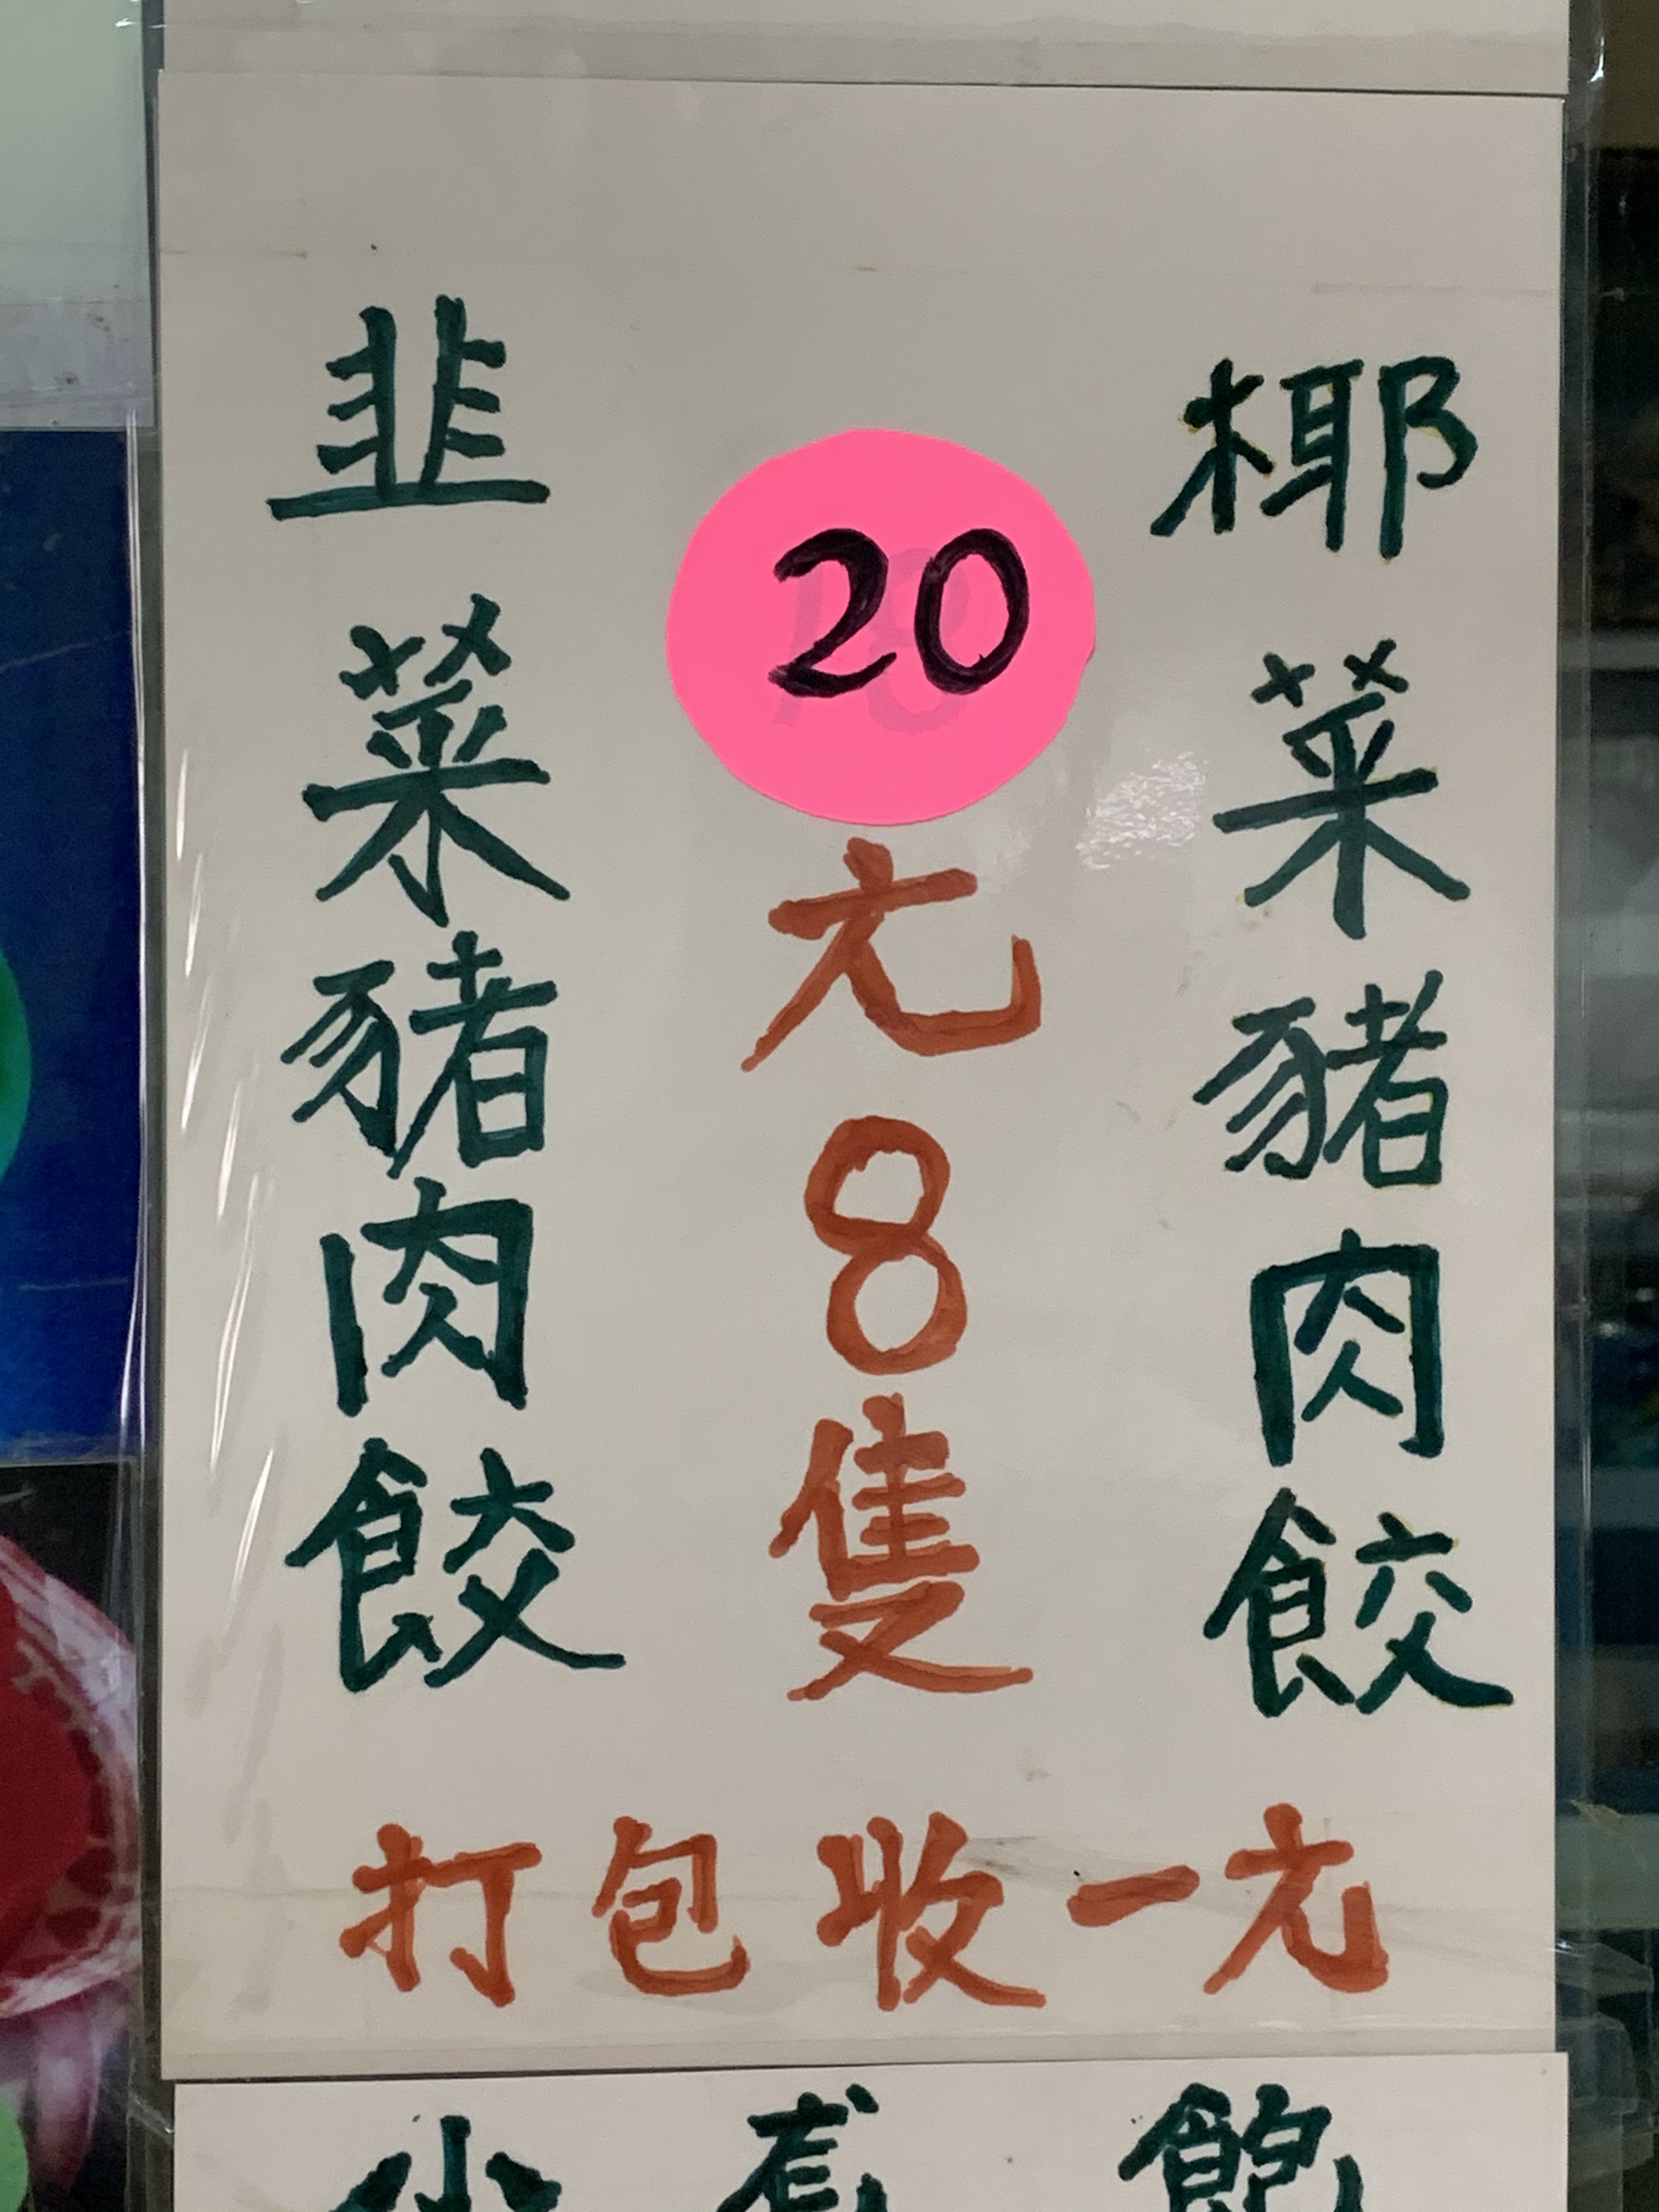 椰菜豬肉餃
20元8隻
韭菜豬肉餃
打包收一元
小